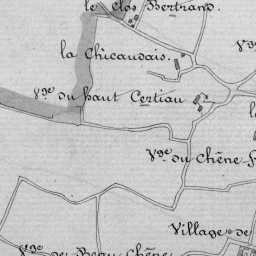 le Clos Bertrand.
Vge
la Chicaudais.
Vge du haut Certiau
Vge du Chêne
Village de
Vge de Beau Chêne